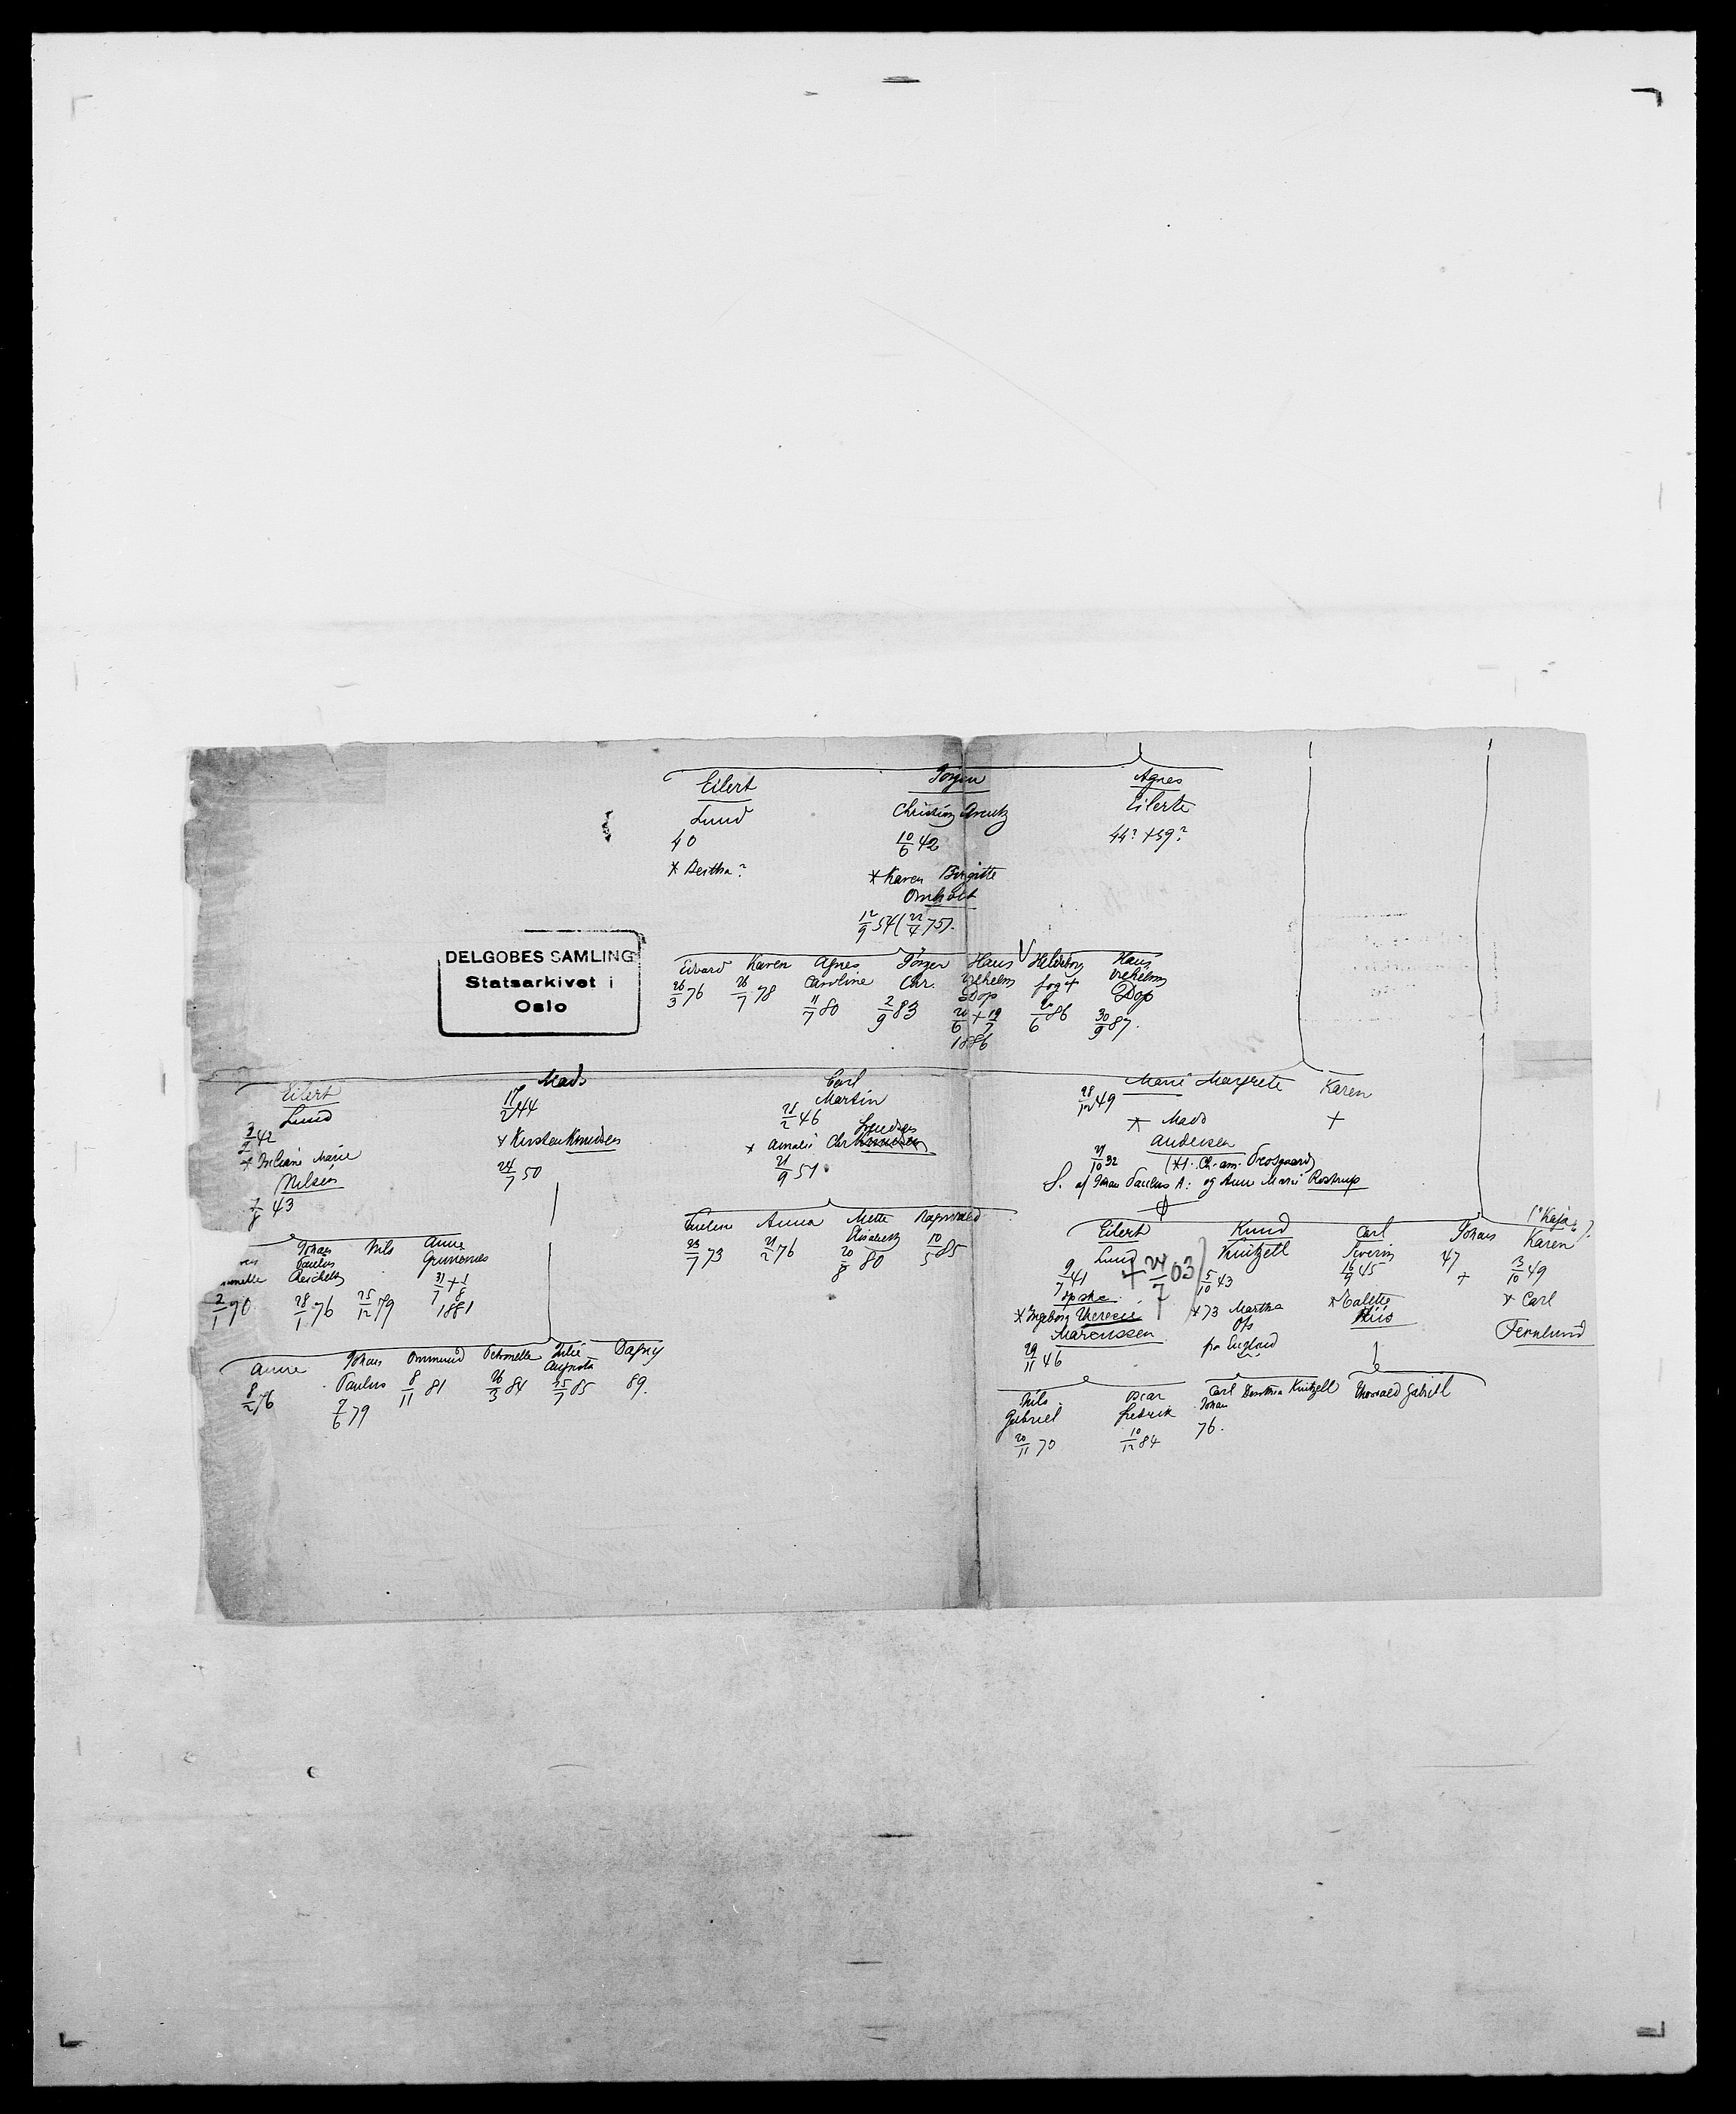 Eilert
Lund
40
* Bertha?
Jørgen
Christian Arentz
10/6 42
* Karen Birgitte
Omholt
12/9 54 (22/4 75).
Agnes
Eilerte
44? +59?
DELGOBES SAMLING
Statsarkivet i
Oslo
Edvard
26/3 76
Karen
26/7 78
Agnes
Caroline
11/7 80
Jørgen
Chr.
2/9 83
Hans
Wilhelm
Dop
20/6 + 19/7
1886
Hildeborg
20/6 86
Hans
Wilhelm
Dop
30/9 87.
Eilert
Lund
3/9 42
Marie
Nilsen
7/8 43
Mads
17/2 44
* Kirsten Knudsen
24/7 50
Carl
Martin
21/2 46
* Amalie Chr.
21/9 51
Marie Margrete
28/12 49
* Mads
Andersen
21/10 32
S. af Johan Paulus A: og Anne Marie Rostrup
Karen
+
2/1 70
Johan
Paulus
28/1 76
Nils
25/12 79
Anne
31/7 + 1/8
1881
Anne
8/2 76
Johan
Paulus
7/6 79
Ommund
8/11 81
Petronelle
26/3 84
Julie
Augusta
25/7 85
Dagny
89.
Evelin
23/7 73
Anna
21/2 76
Mette
Elisabeth
20/8 80
Ragnvald
10/5 85
Eilert
Lund + 24/7 03
9/7 41
* Ingeborg Therese
Marcussen
29/11 46
Knud
Kitzell
5/10 43
* 73 Martha
fra England
Carl
Severin
16/9 45
* Talette
Riis
Johan
47
+
("Kaja")
Karen
13/10 49
* Carl
Fernlund
Nils
Gabriel
20/11 70
Oscar
Fredrik
10/12 84
Carl
Johan
76.
Dorthea Kitzell
Thorvald Gabriel